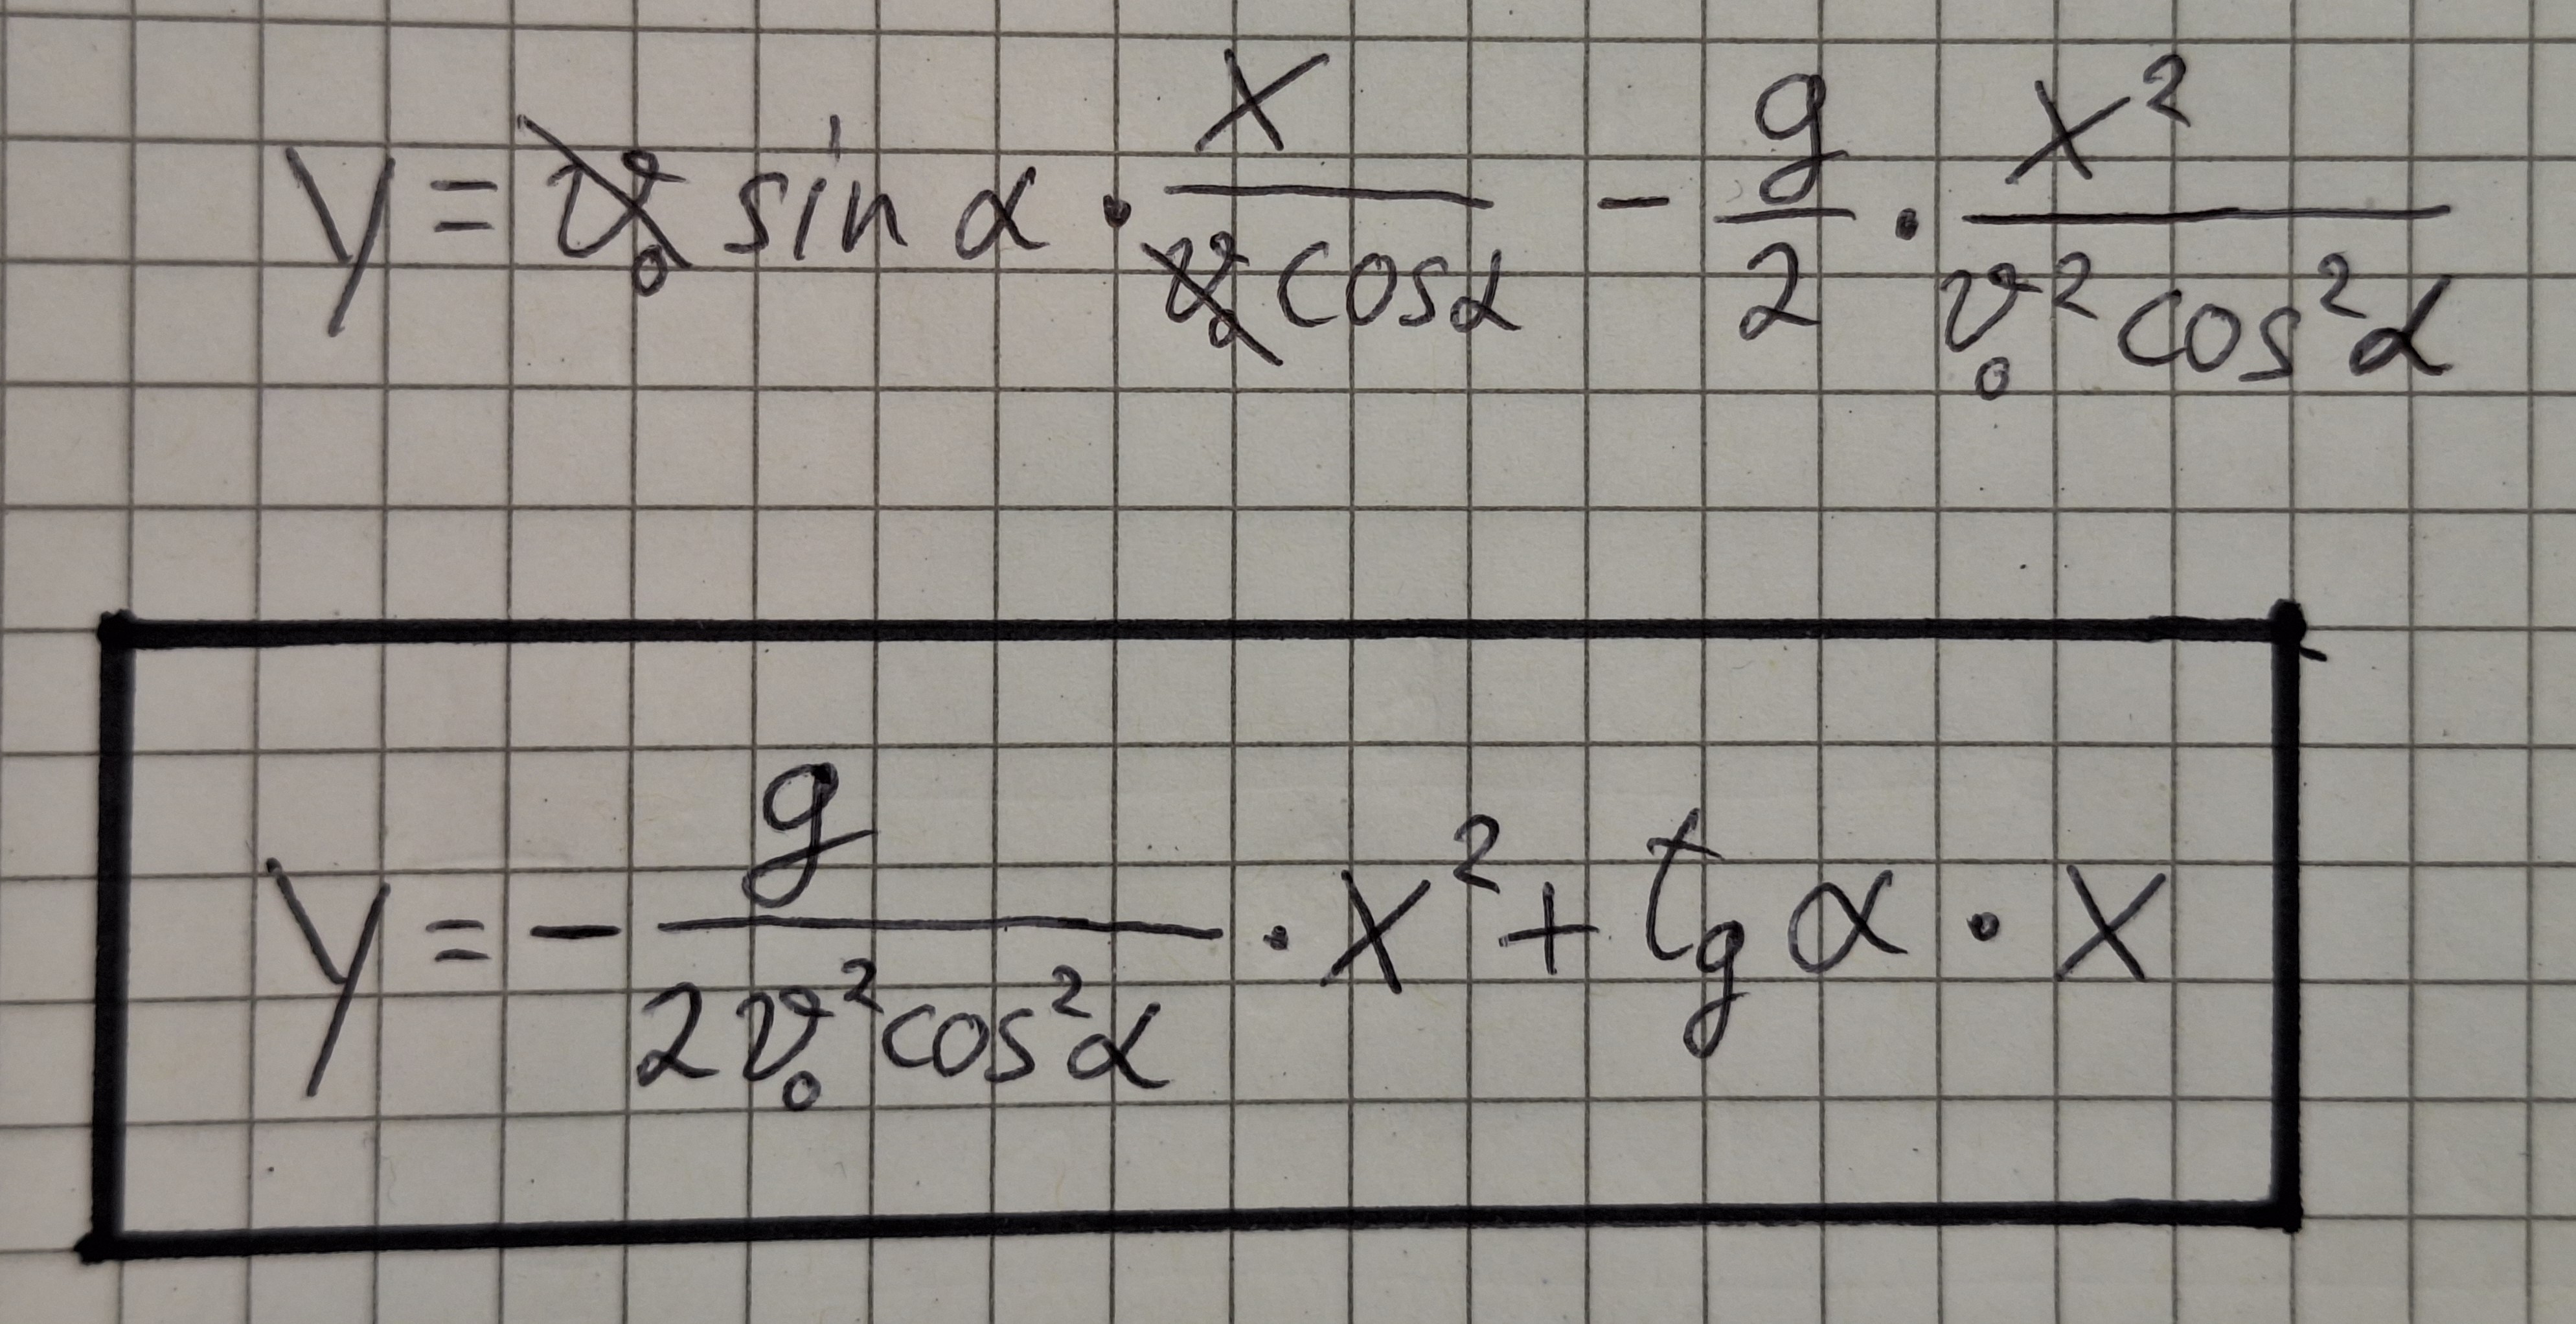 y = v₀ sin α · x / (v₀ cos α) − g/2 · x² / (v₀² cos² α)
y = − g / (2v₀² cos² α) · x² + tg α · x